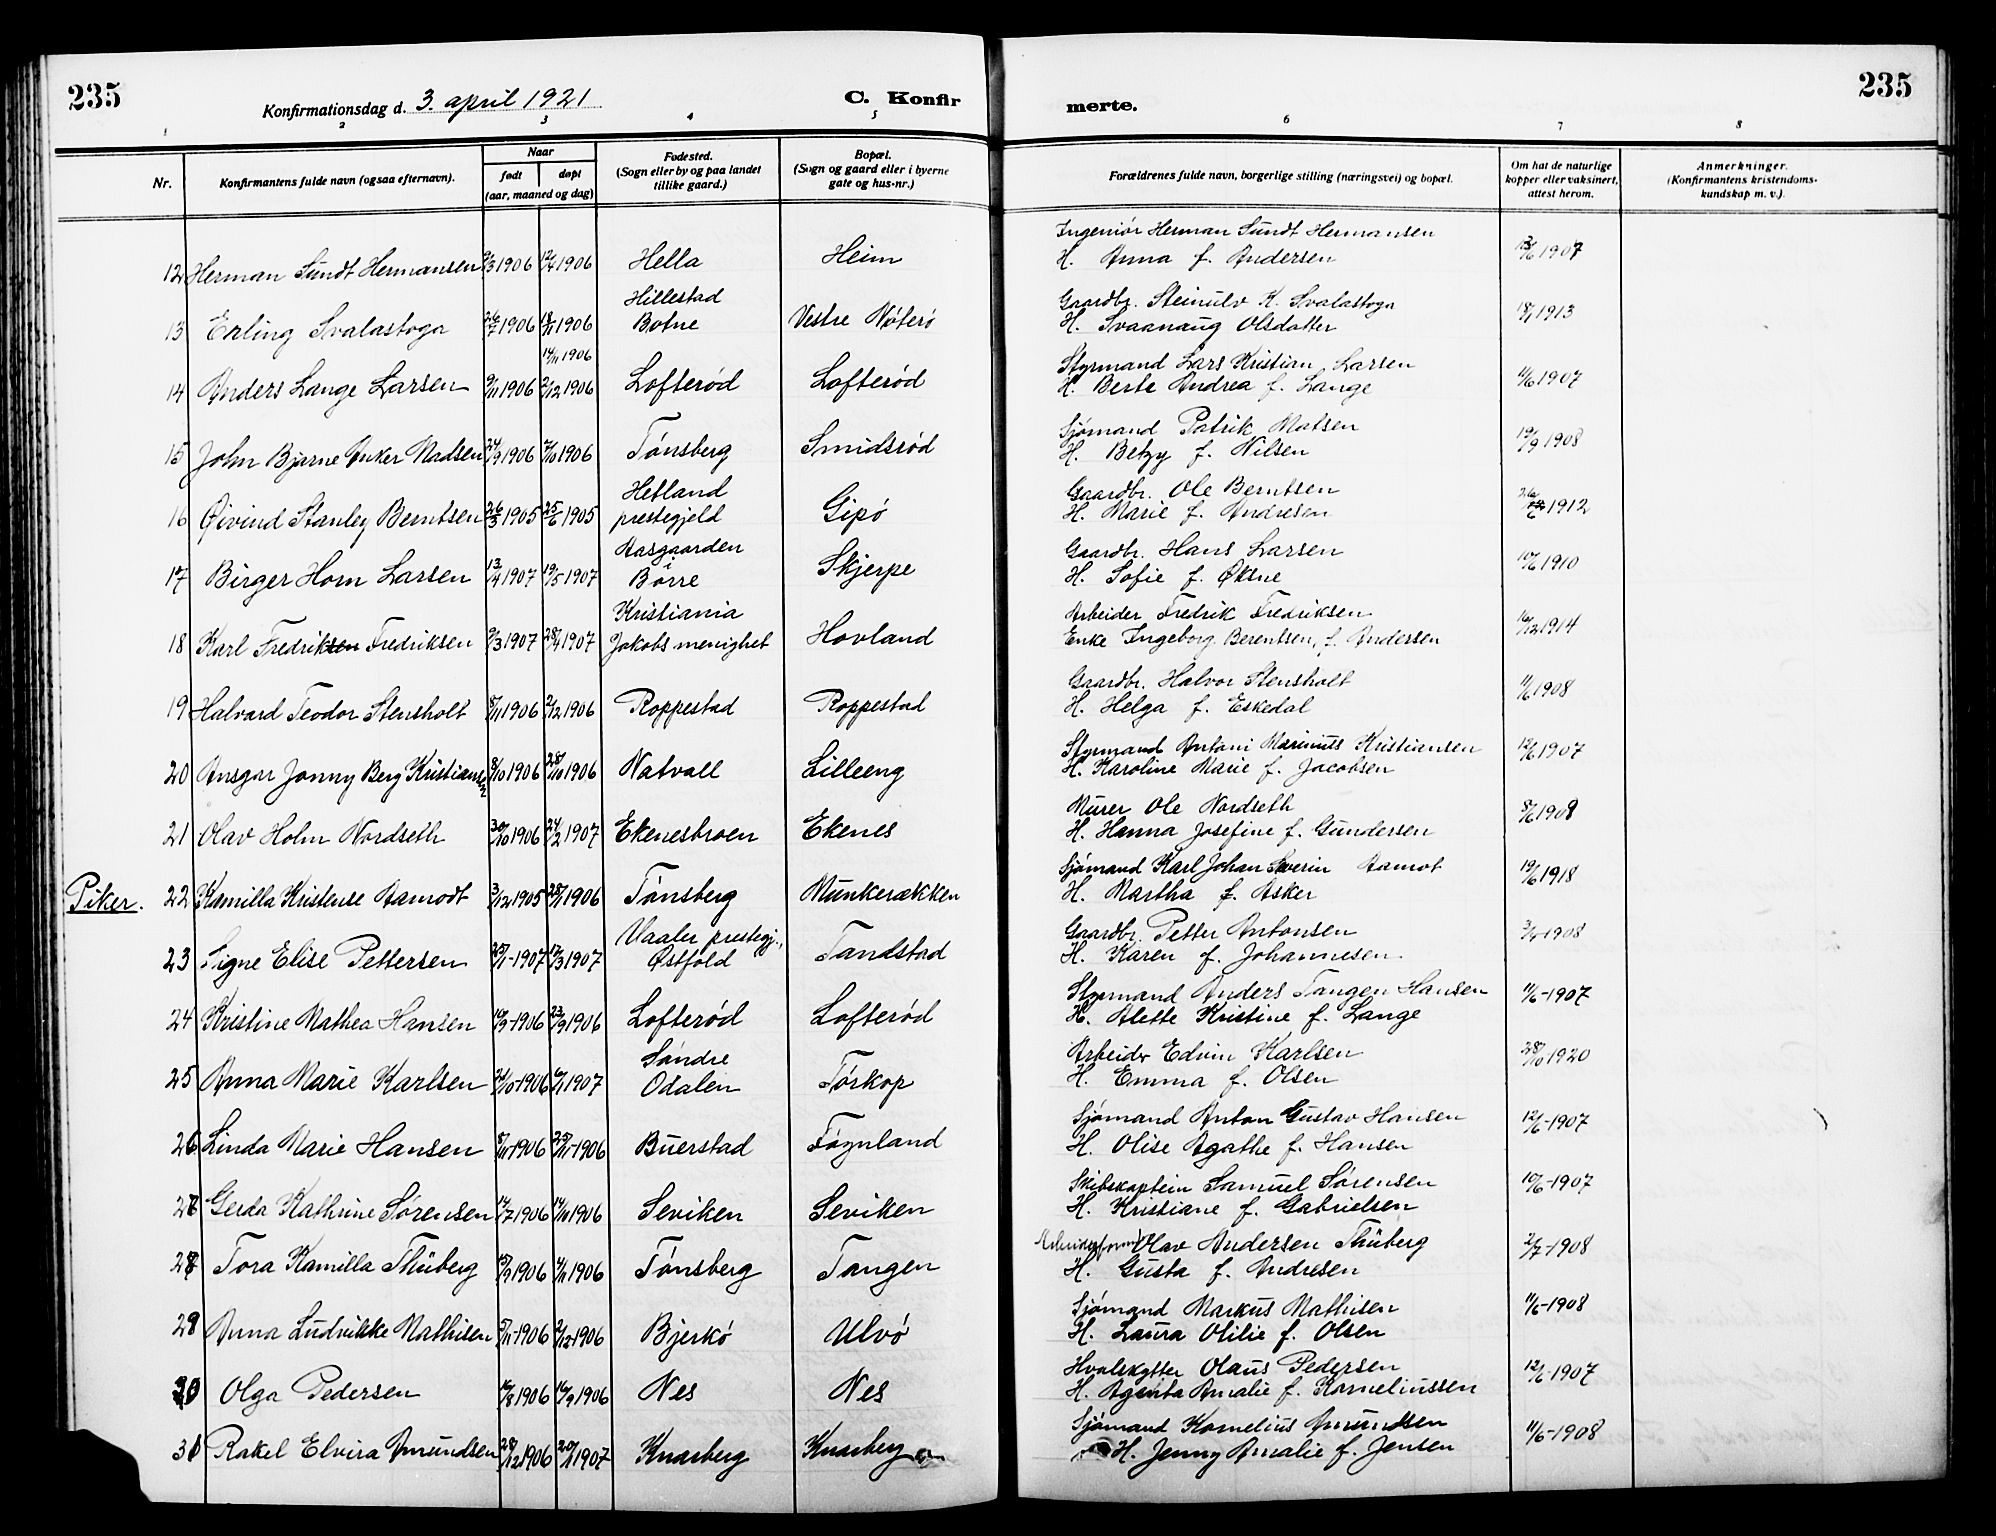 235
Konfirmationsdag d. 3. april 1921
C. Konfir
merte.
235
1 2 3 4 5 6 7 8
Nr.
Konfirmantens fulde navn (ogsaa efternavn).
Naar
født
døpt
(aar, maaned og dag)
Fødested.
(Sogn eller by og paa landet
tillike gaard.)
Bopæl.
(Sogn og gaard eller i byerne
gate og hus-nr.)
Forældrenes fulde navn, borgerlige stilling (næringsvei) og bopæl.
Om hat de naturlige
kopper eller vaksinert,
attest herom.
Anmerkninger.
(Konfirmantens kristendoms-
kundskap m. v.).
Ingeniør Herman Sundt Hermansen
12 Herman Sundt Hermansen 9/3 1906 12/4 1906 Hella Heim H. Anna f. Andersen 1907
Hillestad Gaardbr. Steinulv K. Svalastoga
13 Erling Svalastoga 26/7 1906 18/11 1906 Botne Vestre Nøterø H. Svaanaug Olsdatter 1913
14/11 1906 Styrmand Lars Kristian Larsen
14 Anders Lange Larsen 9/11 1906 2/12 1906 Lofterød Lofterød H. Berte Andrea f. Lange 11/6 1907
Sjømand Patrik Matsen
15 John Bjarne Anker Madsen 24/9 1906 7/10 1906 Tønsberg Smidsrød H. Betzy f. Nilsen 19/9 1908
Hetland Gaardbr. Ole Berntsen
16 Øivind Stanley Berntsen 26/3 1905 25/6 1905 prestegjeld Gipø H. Marie f. Andresen 1912
Aasgaarden Gaardbr. Hans Larsen
17 Birger Horn Larsen 13/4 1907 19/5 1907 i Børre Skjerpe H. Sofie f. Øksne 10/6 1910
Kristiania Arbeider Fredrik Fredriksen
18 Karl Fredriksen Fredriksen 9/3 1907 28/4 1907 Jakobs menighet Hovland Enke Ingeborg Berentsen, f. Andersen 16/12 1914
Gaardbr. Halvor Stensholt
19 Halvard Teodor Stensholt 8/11 1906 2/12 1906 Roppestad Roppestad H. Helga f. Eskedal 11/6 1908
Styrmand Antoni Marinius Kristiansen
20 Ansgar Jonny Berg Kristiansen 8/10 1906 28/10 1906 Natvall Lilleeng H. Karoline Marie f. Jacobsen 12/6 1907
Murer Ole Nordseth
21 Olav Holm Nordseth 30/10 1906 24/2 1907 Ekenesbroen Ekenes H. Hanna Josefine f. Gundersen 8/6 1908
Sjømand Karl Johan Severin Aamot
Piker. 22 Kamilla Kristense Aamodt 3/12 1905 28/1 1906 Tønsberg Munkerækken H. Martha f. Asker 19/6 1918
Vaaler prestegj., Gaardbr. Petter Antonsen
23 Signe Elise Pettersen 25/1-1907 17/3 1907 Østfold Tandstad H. Karen f. Johannesen. 1908
Styrmand Anders Tangen Hansen
24 Kristine Mathea Hansen 10/9-1906 23/9 1906 Lofterød Lofterød H. Alette Kristine f. Lange 11/6-1907
Søndre Arbeider Edvin Karlsen
25 Anna Marie Karlsen 24/10-1906 6/1 1907 Odalen Torkop H. Emma f. Olsen 28/10 1920
Sjømand Anton Gustav Hansen
26 Linda Marie Hansen 8/11-1906 25/11-1906 Buerstad Føynland H. Olise Agathe f. Hansen 12/6-1907
Skibskaptein Samuel Sørensen
27 Gerda Kathrine Sørensen 14/7 1906 14/10 1906 Seviken Seviken H. Kristiane f. Gabrielsen 10/6-1907
Arbeidsform. Olav Andersen Thüberg
28 Tora Kamilla Thüberg 15/9 1906 4/11 1906 Tønsberg Tangen H. Gusta f. Andresen 2/7-1908
Sjømand Markus Mathisen
29 Anna Ludvikke Mathisen 5/11-1906 2/12-1906 Bjerkø Ulvø H. Laura Otilie f. Olsen 11/6-1908
Hvalskytter Olaus Pedersen
30 Olga Pedersen 16/8 1906 16/9 1906 Nes Nes H. Agnita Amalie f. Korneliussen 12/6-1907
Sjømand Kornelius Amundsen
31 Rakel Elvira Amundsen 28/12 1906 20/1 1907 Knarberg Knarberg H. Jenny Amalie f. Jensen 11/6-1908